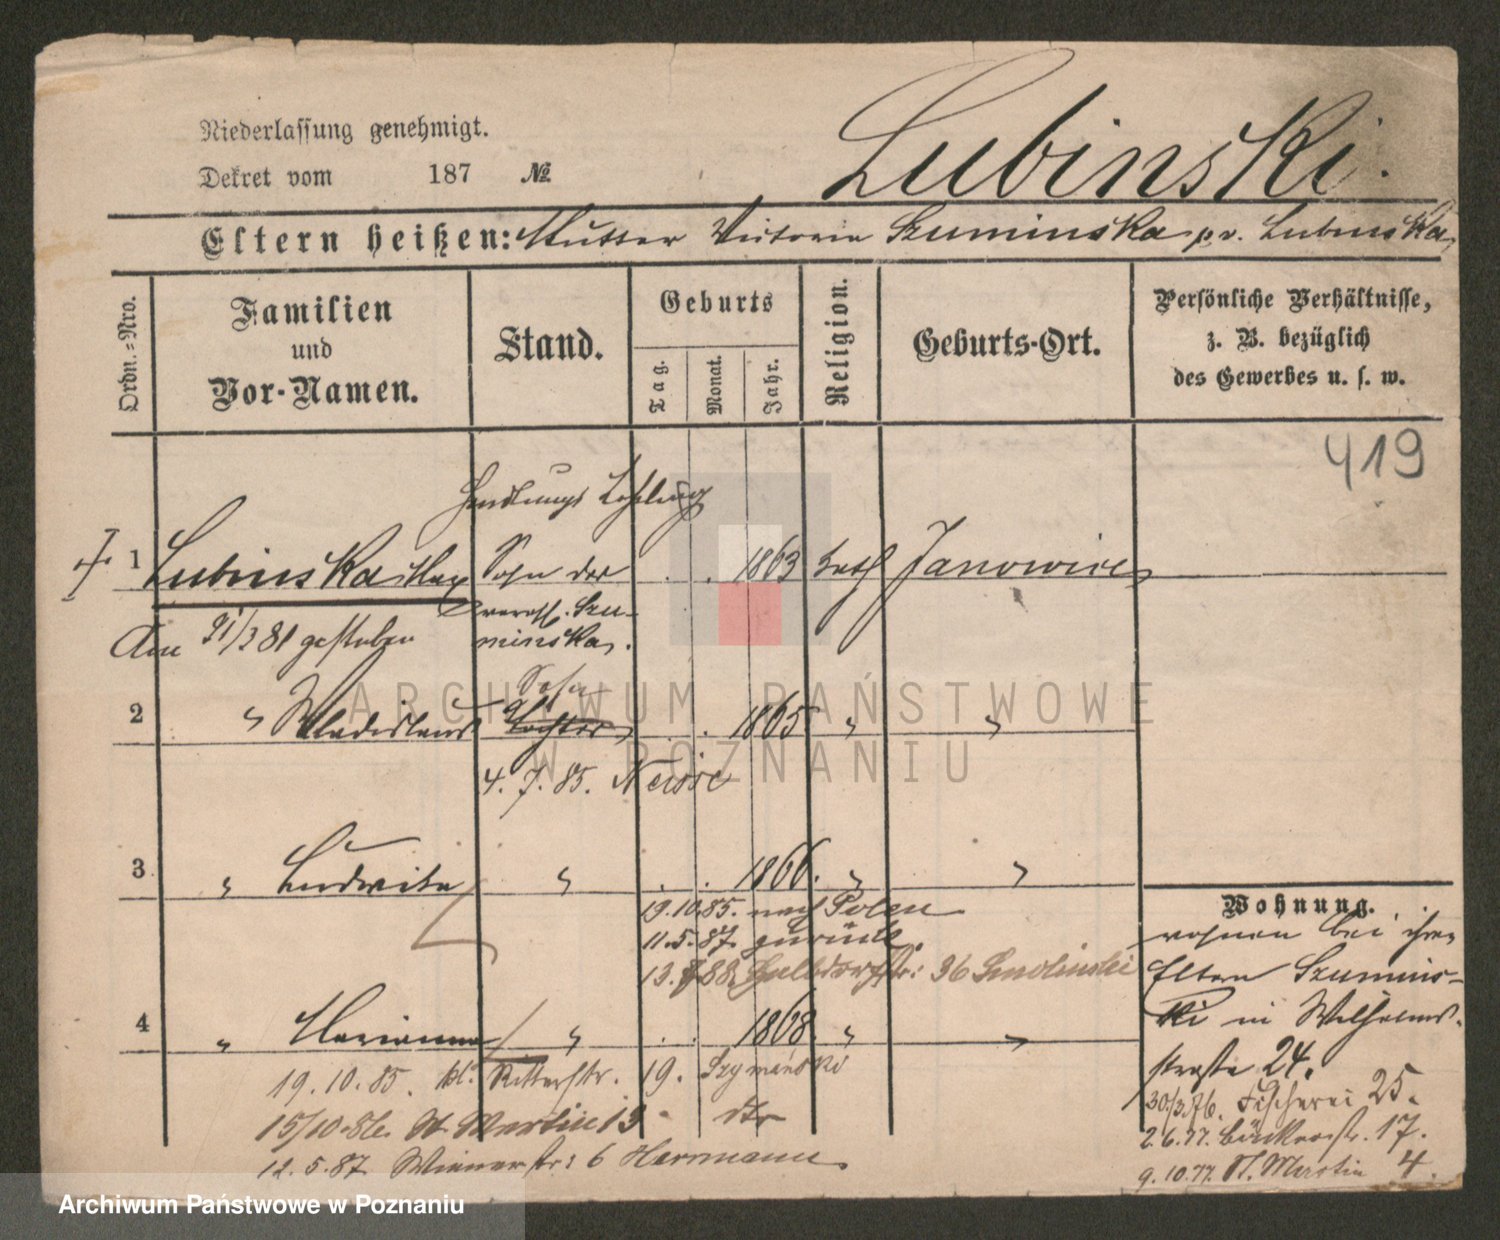 Niederlassung genehmigt.
Dekret vom 187 №
Lubinski.
Eltern heißen: Mutter Victoria Szuminska p. v. Lubinska
Ordn.-Nro.
Familien
und
Vor-Namen.
Stand.
Geburts
Tag.
Monat.
Jahr.
Religion.
Geburts-Ort.
Persönliche Verhältnisse,
z. B. bezüglich
des Gewerbes u. s. w.
419
Handlungs Lehrling
1 Lubinska Max Sohn der . . 1863 kath Janowice
verehl. Szu-
Am 21/3 81 gestorben minska.
Sohn
2 " Wladislaus Tochter . . 1865 " "
4. 7. 85. Neisse
3 " Ludwika " . . 1866. " "
Wohnung.
19.10.85. nach Polen
wohnen bei ihren
11.5.87. zurück.
Eltern Szumins-
13. 88. Halbdorfstr: 36 Smolinski
ki in Wilhelms-
4 " Marianna " . . 1868 " "
straße 24.
19. 10. 85. kl. Ritterstr. 19. Szymański
30/3.76. Fischerei 25.
15/10.86. St. Martin 13 - dto
2.6.77. Bäckerstr. 17.
12. 5. 87 Wienerstr: 6 Harrmann
9.10.77. St. Martin 4.
ARCHIWUM PAŃSTWOWE
W POZNANIU
Archiwum Państwowe w Poznaniu